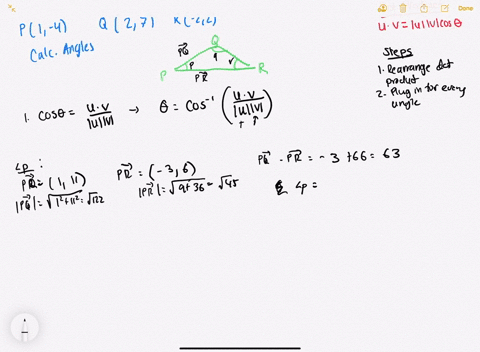 P(1,-4) Q(2,7) R(-2,2)
Calc. Angles
u⃗·v = |u||v|cosθ
Steps
1. Rearrange dot product
2. Plug in for every angle
Q
PQ⃗
q
P
p
r
R
PR⃗
1. cosθ = u·v/|u||v| → θ = cos⁻¹(u·v/|u||v|)
∠p:
PQ⃗ = (1, 11)
|PQ⃗| = √1²+11² = √122
PR⃗ = (-3, 6)
|PR⃗| = √9+36 = √45
PQ⃗ · PR⃗ = -3 + 66 = 63
∠p =